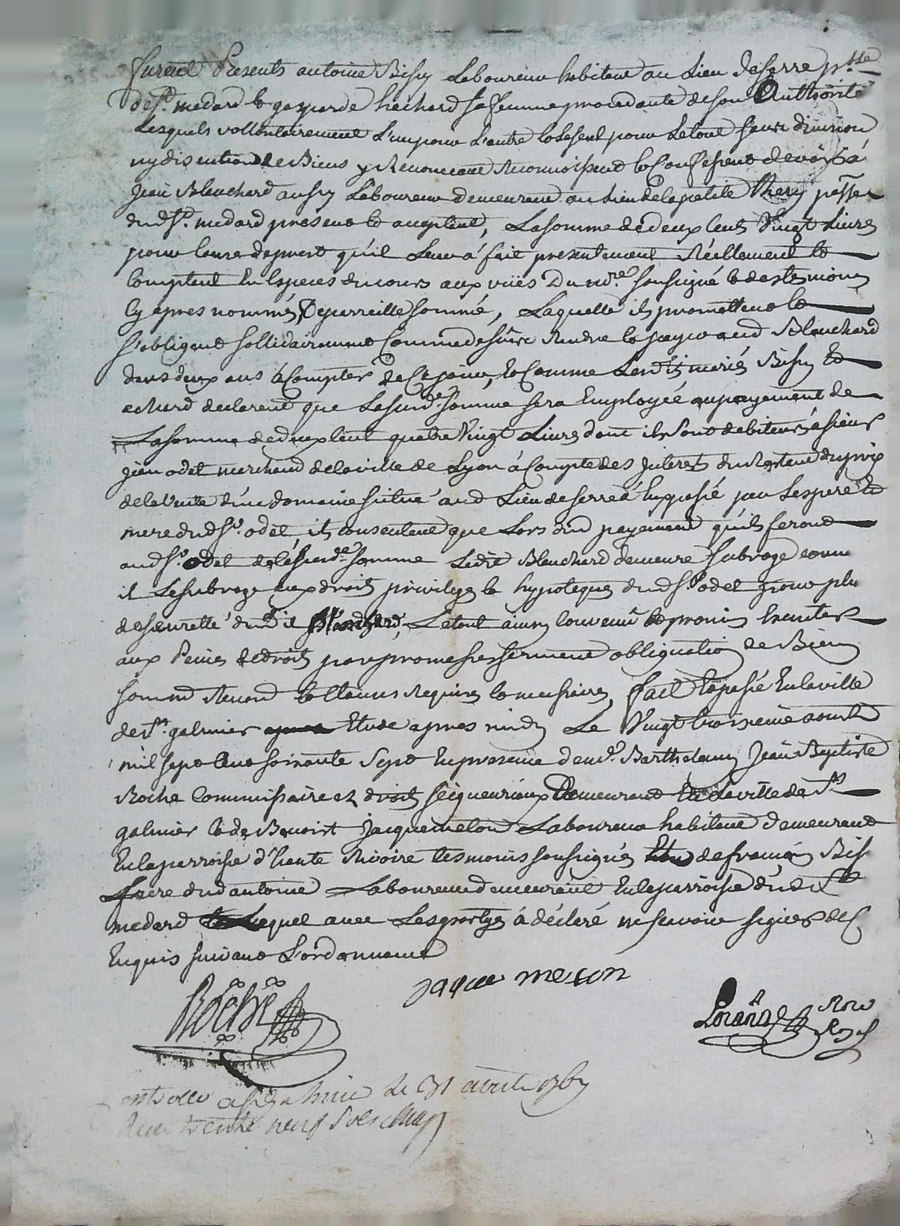 furent Presents antoine Bissy Laboureur habitant au Lieu de serre p.sse
de s.t medard et gasparde hechard sa femme procedante de son Authorité
Lesquels vollontairement L'un pour L'autre et seul pour Le tout sans division
ny discution de Biens y Renonceant Reconnoissent et Confessent devoir à
Jean Blanchard aussy Laboureur demeurant au Lieu de la petite p.sse
dud s.t medard present et acceptant, La somme de deux Cent Vingt Livres
pour Cause de prest qu'il Leur à fait presentement Réellement et
Comptant En Especes du cours aux vües Du no.re soussigné et des temoins
Cy apres nommés, De pareille sommé, Laquelle ils promettent et
s'obligent sollidairement Comme dessus Rendre et payer aud Blanchard
dans deux ans à Compter de Ce jour, Et Comme Lesd mariés Bissy et
echard declarent que La susd.e somme sera Employée au payement de
La somme de deux Cent quatre Vingt Livres dont ils sont debiteurs à sieur
jean odet marchand de la ville de Lyon à Compte des Interets du Restant du prix
de la Vente d'un domaine situé aud Lieu de serre à Eux passé par Les pere et
mere dud s.r odet, ils consentent que Lors du payement qu'ils feront
aud s.r odet de la susd.e somme Ledit Blanchard demeure subrogé comme
il Le subroge aux droits privileges et hypoteques dud s.r odet pour plus
de seuretté dud it Blanchard, Le tout ainsi Convenu Et promis Executer
aux Peines de droit par promesses serment obligation de Biens
soumis Renon et Clauses Requises et necessaires, fait Et passé En la ville
de s.t galmier Etude apres midy Le Vingt troisieme avril
mil sept Cent soixante Sept En presence de m.r Barthelemy Jean Baptiste
Roche Commissaire ez droits seigneuriaux Demeurant En La ville de S.t
galmier et de Benoist Jacquemeton Laboureur habitant demeurant
En la parroisse d'haute Rivoire temoins soussignés de françois Bissy
frere dud antoine Laboureur demeurant En la parroisse dud S.t
medard Lequel avec Les parties à déclaré ne scavoir signer de C
Enquis suivant L'ordonnance
jaque meton
Roche
controllé a s.t galmier Le avril 1767
Reçu trente neuf sols